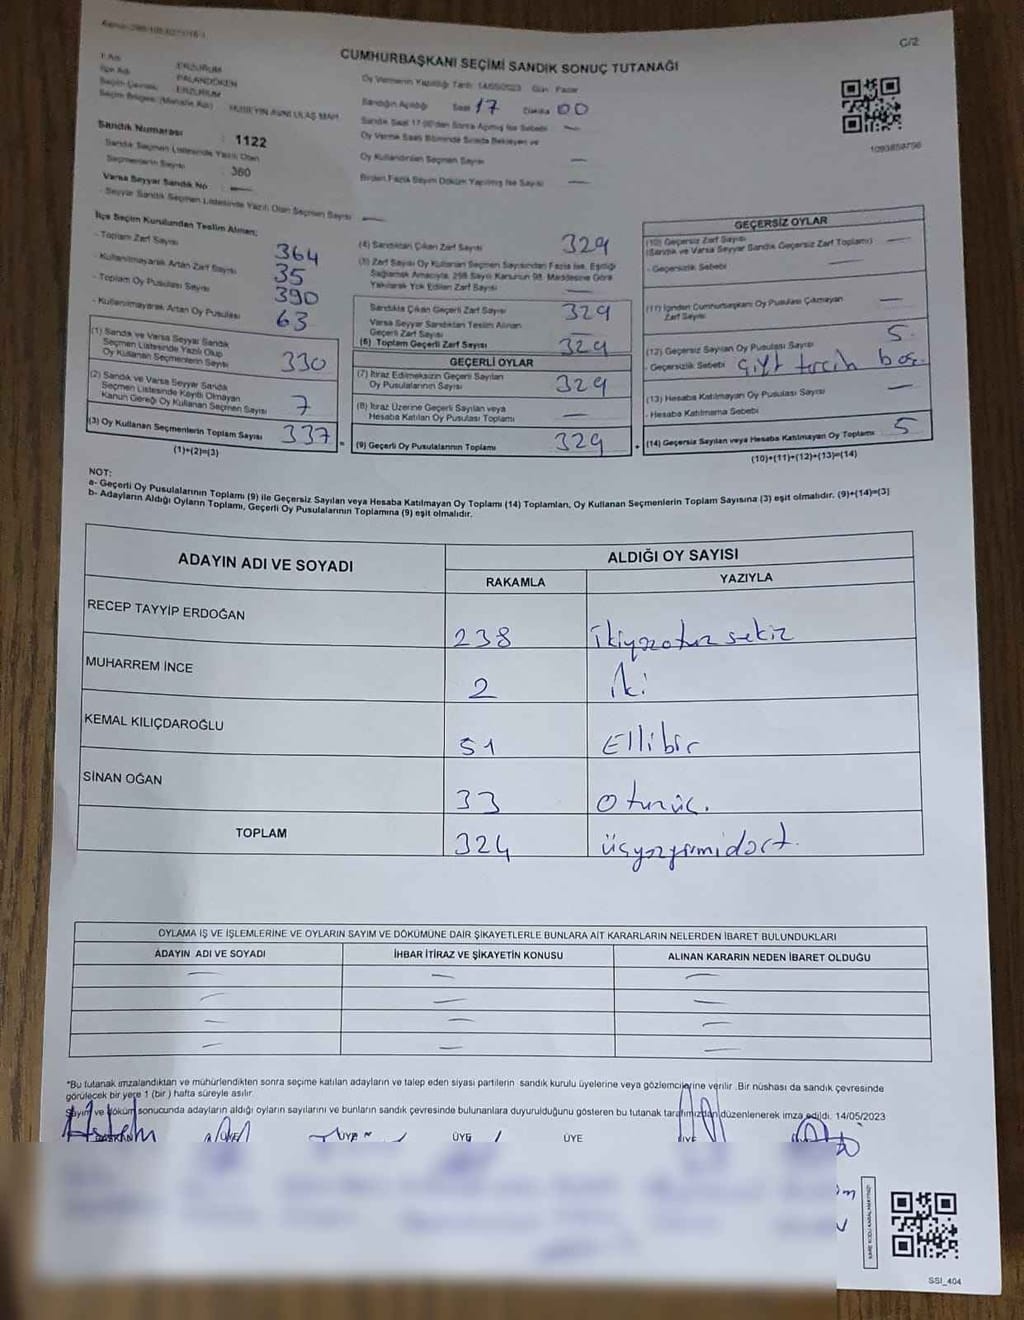 C/2
CUMHURBAŞKANI SEÇİMİ SANDIK SONUÇ TUTANAĞI
Oy Vermenin Yapıldığı Tarih 14/05/2023 Gün Pazar
İl Adı ERZURUM
İlçe Adı PALANDÖKEN
Seçim Çevresi ERZURUM
Seçim Bölgesi (Mahalle Adı) HÜSEYİN AVNİ ULAŞ MAH.
Sandık Numarası : 1122
Sandık Seçmen Listesinde Yazılı Olan
Seçmenlerin Sayısı : 360
Varsa Seyyar Sandık No : —
- Seyyar Sandık Seçmen Listesinde Yazılı Olan Seçmen Sayısı —
Sandığın Açıldığı Saat 17 Dakika 00
Sandık Saat 17:00'den Sonra Açılmış İse Sebebi —
Oy Verme Saati Bitiminde Sırada Bekleyen ve
Oy Kullandırılan Seçmen Sayısı —
Birden Fazla Sayım Döküm Yapılmış İse Sayısı —
1093859756
İlçe Seçim Kurulundan Teslim Alınan;
- Toplam Zarf Sayısı 364
- Kullanılmayarak Artan Zarf Sayısı 35
- Toplam Oy Pusulası Sayısı 390
- Kullanılmayarak Artan Oy Pusulası 63
(1) Sandık ve Varsa Seyyar Sandık
Seçmen Listesinde Yazılı Olup
Oy Kullanan Seçmenlerin Sayısı 330
(2) Sandık ve Varsa Seyyar Sandık
Seçmen Listesinde Kayıtlı Olmayan
Kanun Gereği Oy Kullanan Seçmen Sayısı 7
(3) Oy Kullanan Seçmenlerin Toplam Sayısı 337 =
(1)+(2)=(3)
(4) Sandıktan Çıkan Zarf Sayısı 329
(5) Zarf Sayısı Oy Kullanan Seçmen Sayısından Fazla İse, Eşitliği
Sağlamak Amacıyla, 298 Sayılı Kanunun 98. Maddesine Göre
Yakılarak Yok Edilen Zarf Sayısı —
Sandıkta Çıkan Geçerli Zarf Sayısı 329
Varsa Seyyar Sandıktan Teslim Alınan
Geçerli Zarf Sayısı
(6) Toplam Geçerli Zarf Sayısı 329
GEÇERLİ OYLAR
(7) İtiraz Edilmeksizin Geçerli Sayılan
Oy Pusulalarının Sayısı 329
(8) İtiraz Üzerine Geçerli Sayılan veya
Hesaba Katılan Oy Pusulası Toplamı —
(9) Geçerli Oy Pusulalarının Toplamı 329 +
GEÇERSİZ OYLAR
(10) Geçersiz Zarf Sayısı —
(Sandık ve Varsa Seyyar Sandık Geçersiz Zarf Toplamı)
- Geçersizlik Sebebi —
(11) İçinden Cumhurbaşkanı Oy Pusulası Çıkmayan
Zarf Sayısı —
(12) Geçersiz Sayılan Oy Pusulası Sayısı 5.
- Geçersizlik Sebebi Çift tercih boş.
(13) Hesaba Katılmayan Oy Pusulası Sayısı —
- Hesaba Katılmama Sebebi
(14) Geçersiz Sayılan veya Hesaba Katılmayan Oy Toplamı 5
(10)+(11)+(12)+(13)=(14)
NOT:
a- Geçerli Oy Pusulalarının Toplamı (9) ile Geçersiz Sayılan veya Hesaba Katılmayan Oy Toplamı (14) Toplamları, Oy Kullanan Seçmenlerin Toplam Sayısına (3) eşit olmalıdır. (9)+(14)=(3)
b- Adayların Aldığı Oyların Toplamı, Geçerli Oy Pusulalarının Toplamına (9) eşit olmalıdır.
ADAYIN ADI VE SOYADI ALDIĞI OY SAYISI
RAKAMLA YAZIYLA
RECEP TAYYİP ERDOĞAN 238 ikiyüzotuz sekiz
MUHARREM İNCE 2 iki
KEMAL KILIÇDAROĞLU 51 Ellibir
SİNAN OĞAN 33 Otuzüç.
TOPLAM 324 üçyüzyirmidört.
OYLAMA İŞ VE İŞLEMLERİNE VE OYLARIN SAYIM VE DÖKÜMÜNE DAİR ŞİKAYETLERLE BUNLARA AİT KARARLARIN NELERDEN İBARET BULUNDUKLARI
ADAYIN ADI VE SOYADI İHBAR İTİRAZ VE ŞİKAYETİN KONUSU ALINAN KARARIN NEDEN İBARET OLDUĞU
— — —
— — —
— — —
— — —
*Bu tutanak imzalandıktan ve mühürlendikten sonra seçime katılan adayların ve talep eden siyasi partilerin sandık kurulu üyelerine veya gözlemcilerine verilir. Bir nüshası da sandık çevresinde
görülecek bir yere 1 (bir) hafta süreyle asılır.
Sayım ve döküm sonucunda adayların aldığı oyların sayılarını ve bunların sandık çevresinde bulunanlara duyurulduğunu gösteren bu tutanak tarafımızdan düzenlenerek imza edildi. 14/05/2023
BAŞKAN ÜYE ÜYE ÜYE ÜYE ÜYE
SSI_404